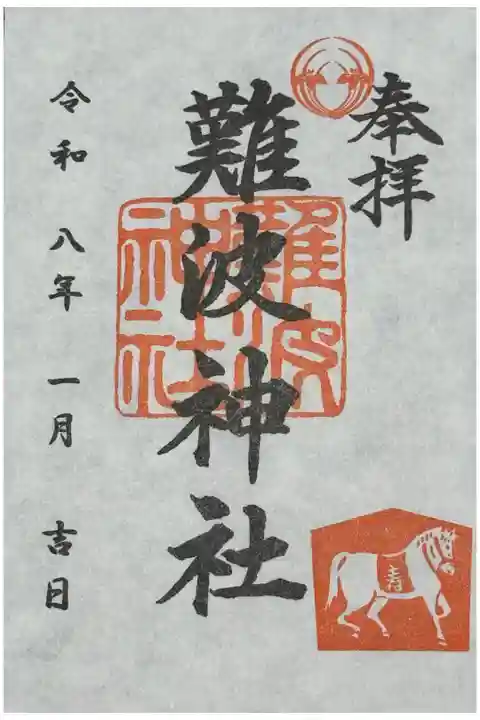 奉拝
難波神社
難波
神社
寿
令和 八年 一月 吉日